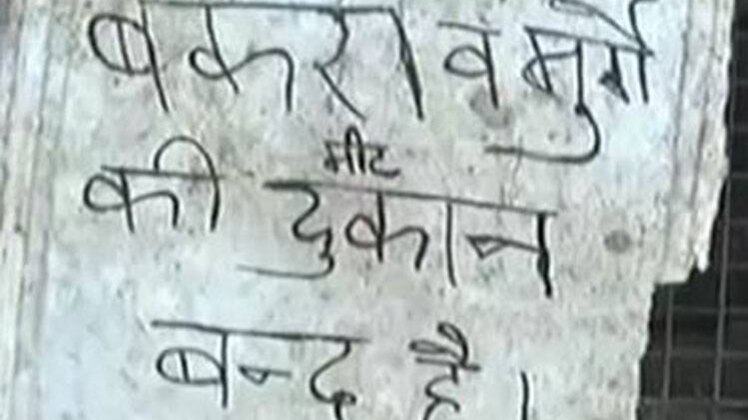 बकरा व मुर्गे
की मीट दुकान
बन्द है।